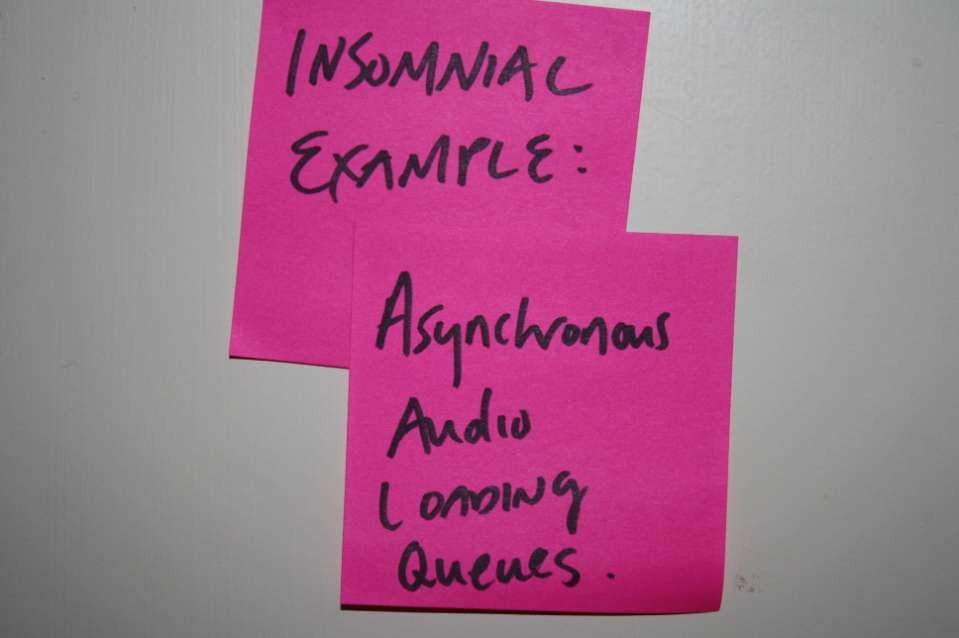 INSOMNIAC
EXAMPLE:
Asynchronous
Audio
LOADING
Queues.